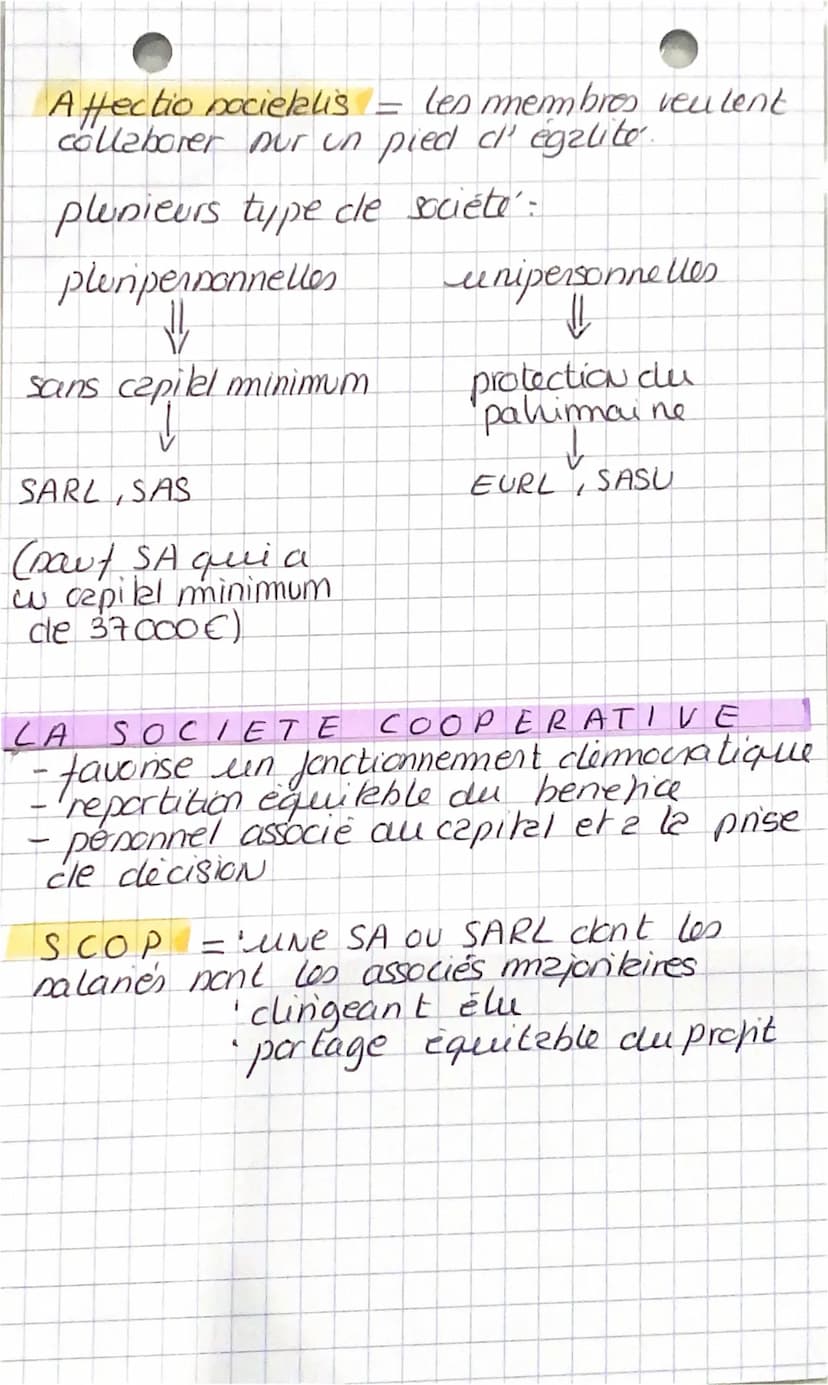 Affectio societatis = les membres veulent
collaborer sur un pied d'égalité.
plusieurs type de société :
pluripersonnelles unipersonnelles
⇓ ⇓
sans capital minimum protection du
patrimoine
↓ ↓
SARL, SAS EURL, SASU
(sauf SA qui a
un capital minimum
de 37000€)
LA SOCIETE COOPERATIVE
- favorise un fonctionnement démocratique
- repartition équitable du benefice
- personnel associé au capital et a la prise
de décision
SCOP = • une SA ou SARL dont les
salariés sont les associés majoritaires
• dirigeant élu
• partage équitable du profit